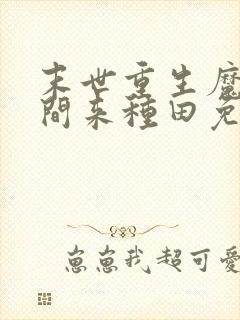 末世重生魔
間來種田免
崽崽我超可愛